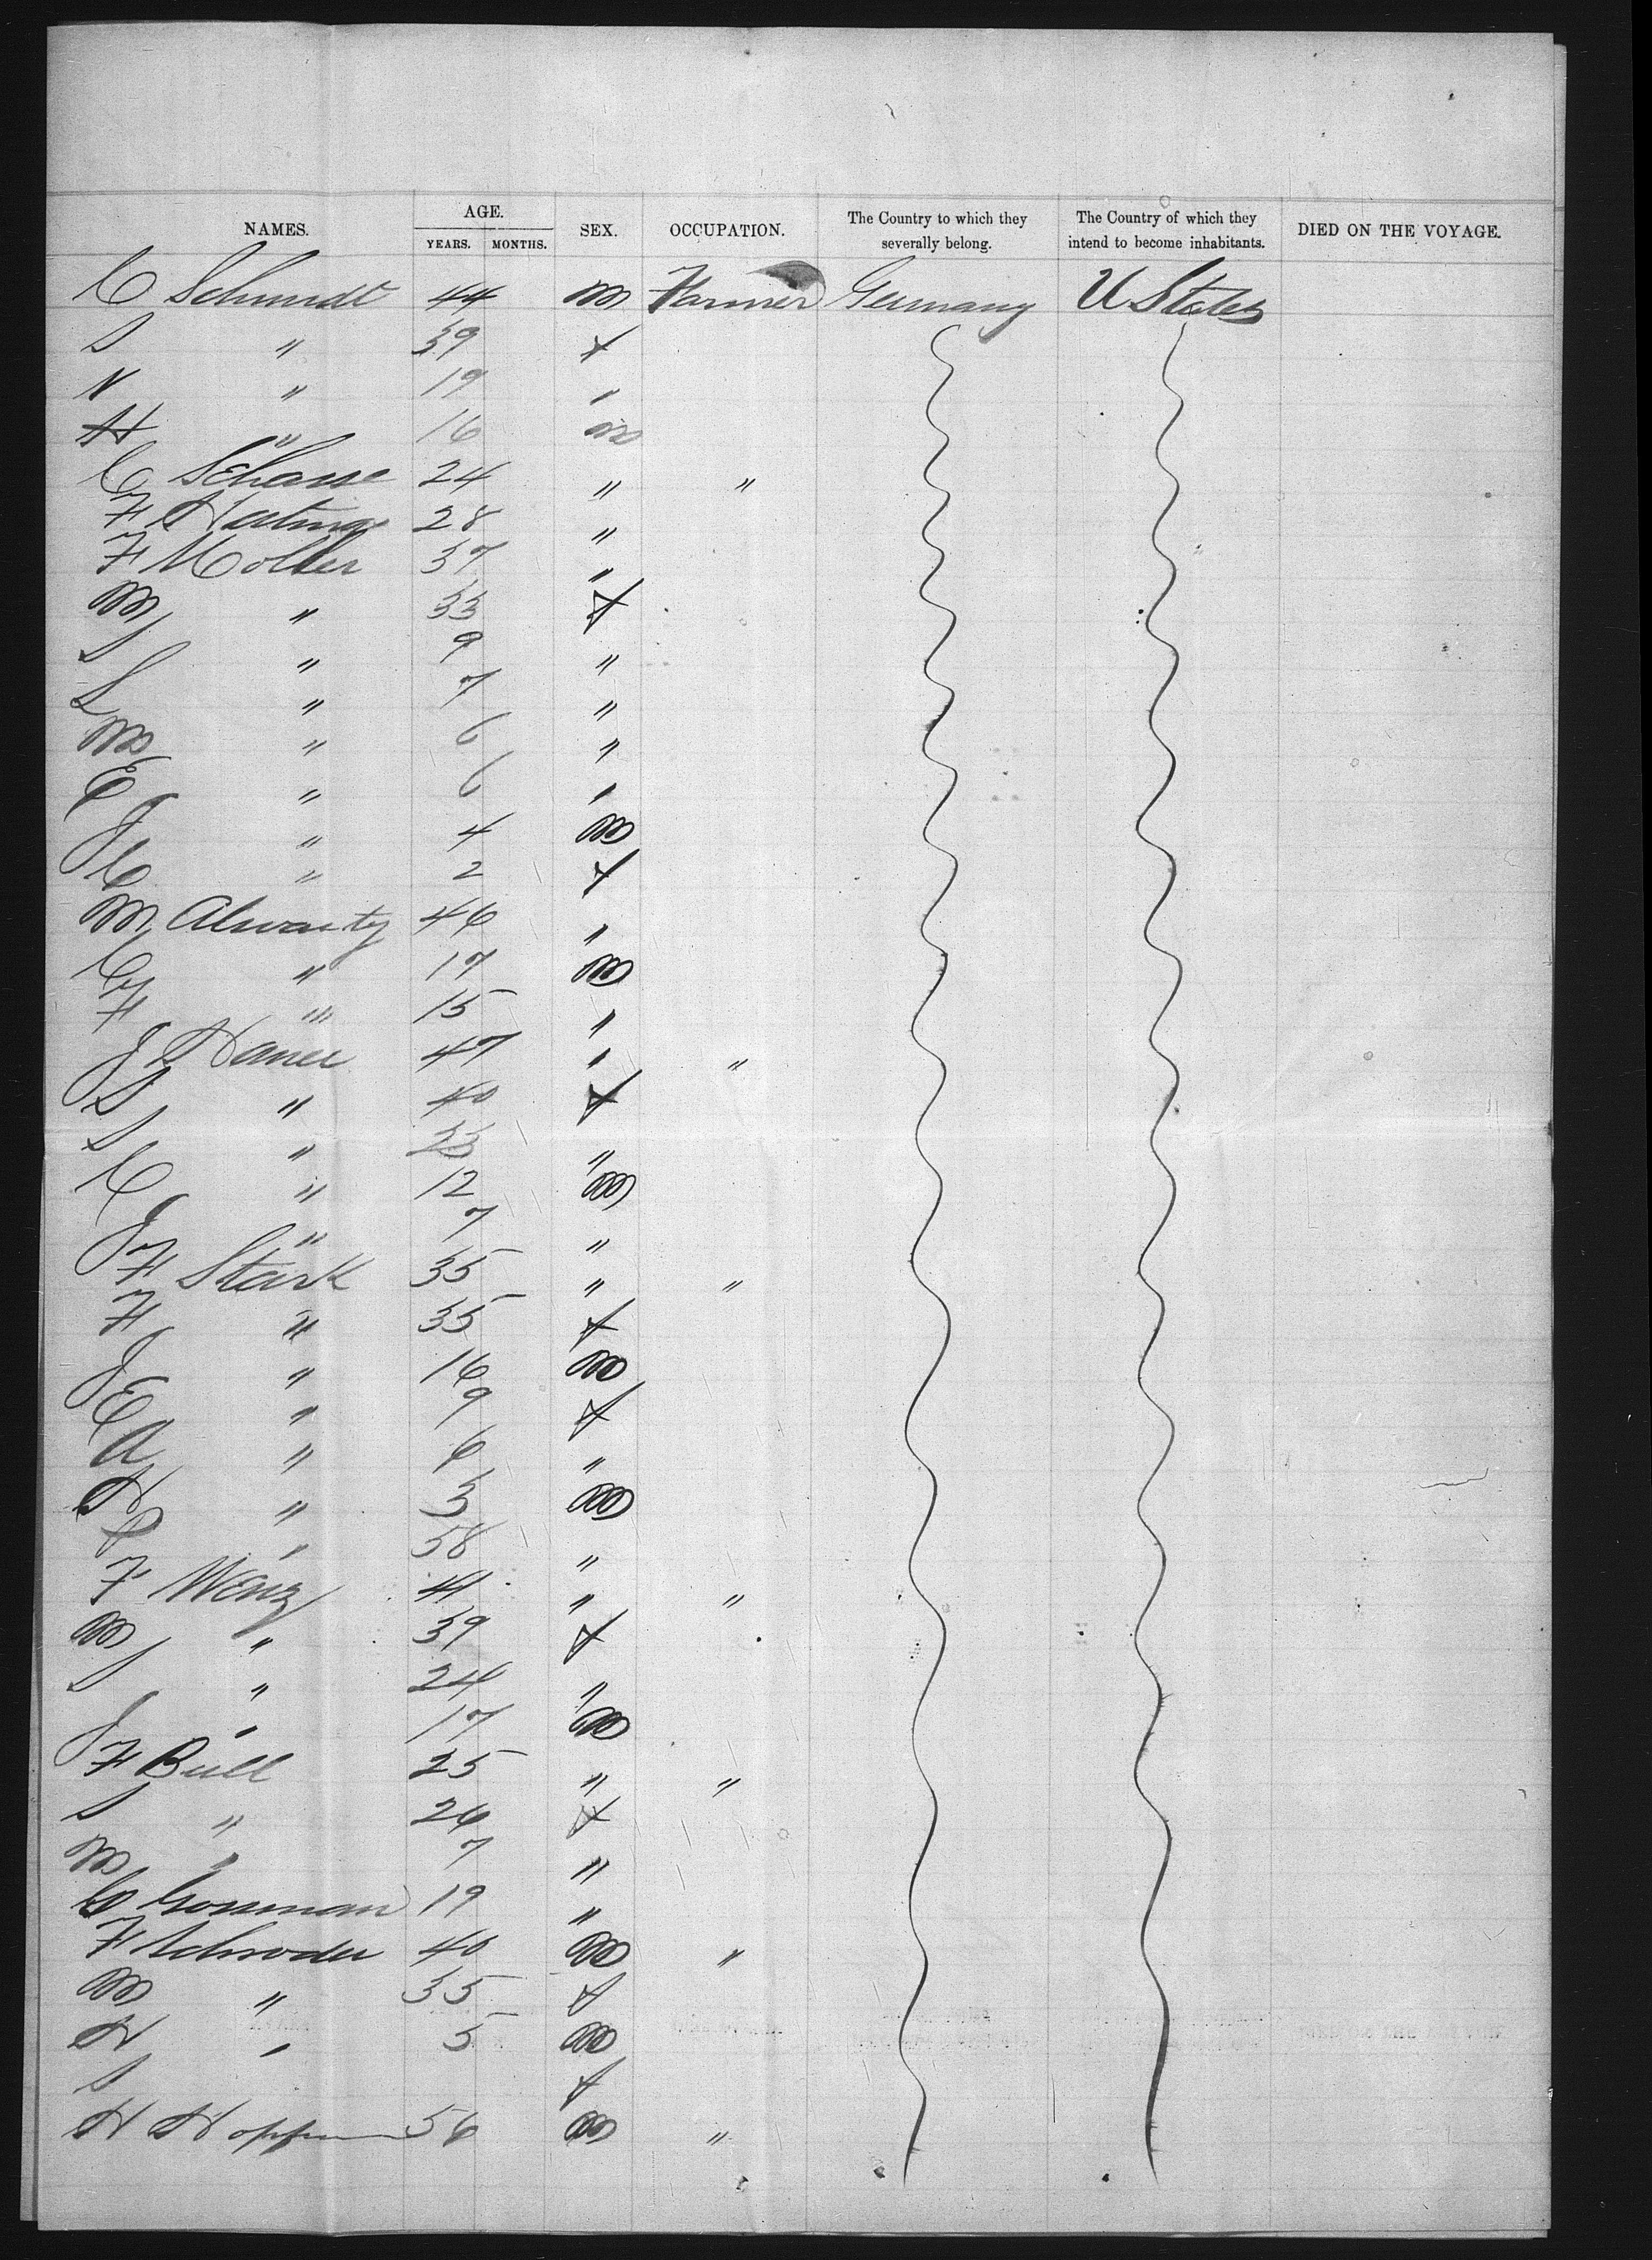 NAMES. AGE. YEARS. MONTHS. SEX. OCCUPATION. The Country to which they severally belong. The Country of which they intend to become inhabitants. DIED ON THE VOYAGE.
C Schmidt 44 m Farmer Germany U States
S " 39 f
N " 19 "
H " 16 m
C Schasse 24 " "
F 28 "
F Moller 37 "
M " 33 f
S " 9 "
L " 7 "
M " 6 "
E " 6 "
J " 4 m
C " 2 f
M Alwarty 46 "
C " 17 m
F " 15 "
J Haner 47 " "
S " 40 f
S " 23 "
C " 12 m
J " 7 "
F Stark 35 " "
F " 35 f
J " 16 m
E " 9 f
A " 6 "
H " 3 m
C " 58 "
F Wenz 41 " "
M " 39 f
S " 24 "
J " 17 m
F Bull 25 " "
S " 26 f
M " 7 "
C Grossman 19 "
F Schroder 40 m "
M " 35 f
H " 5 m
S f
H Hoppen 56 m "